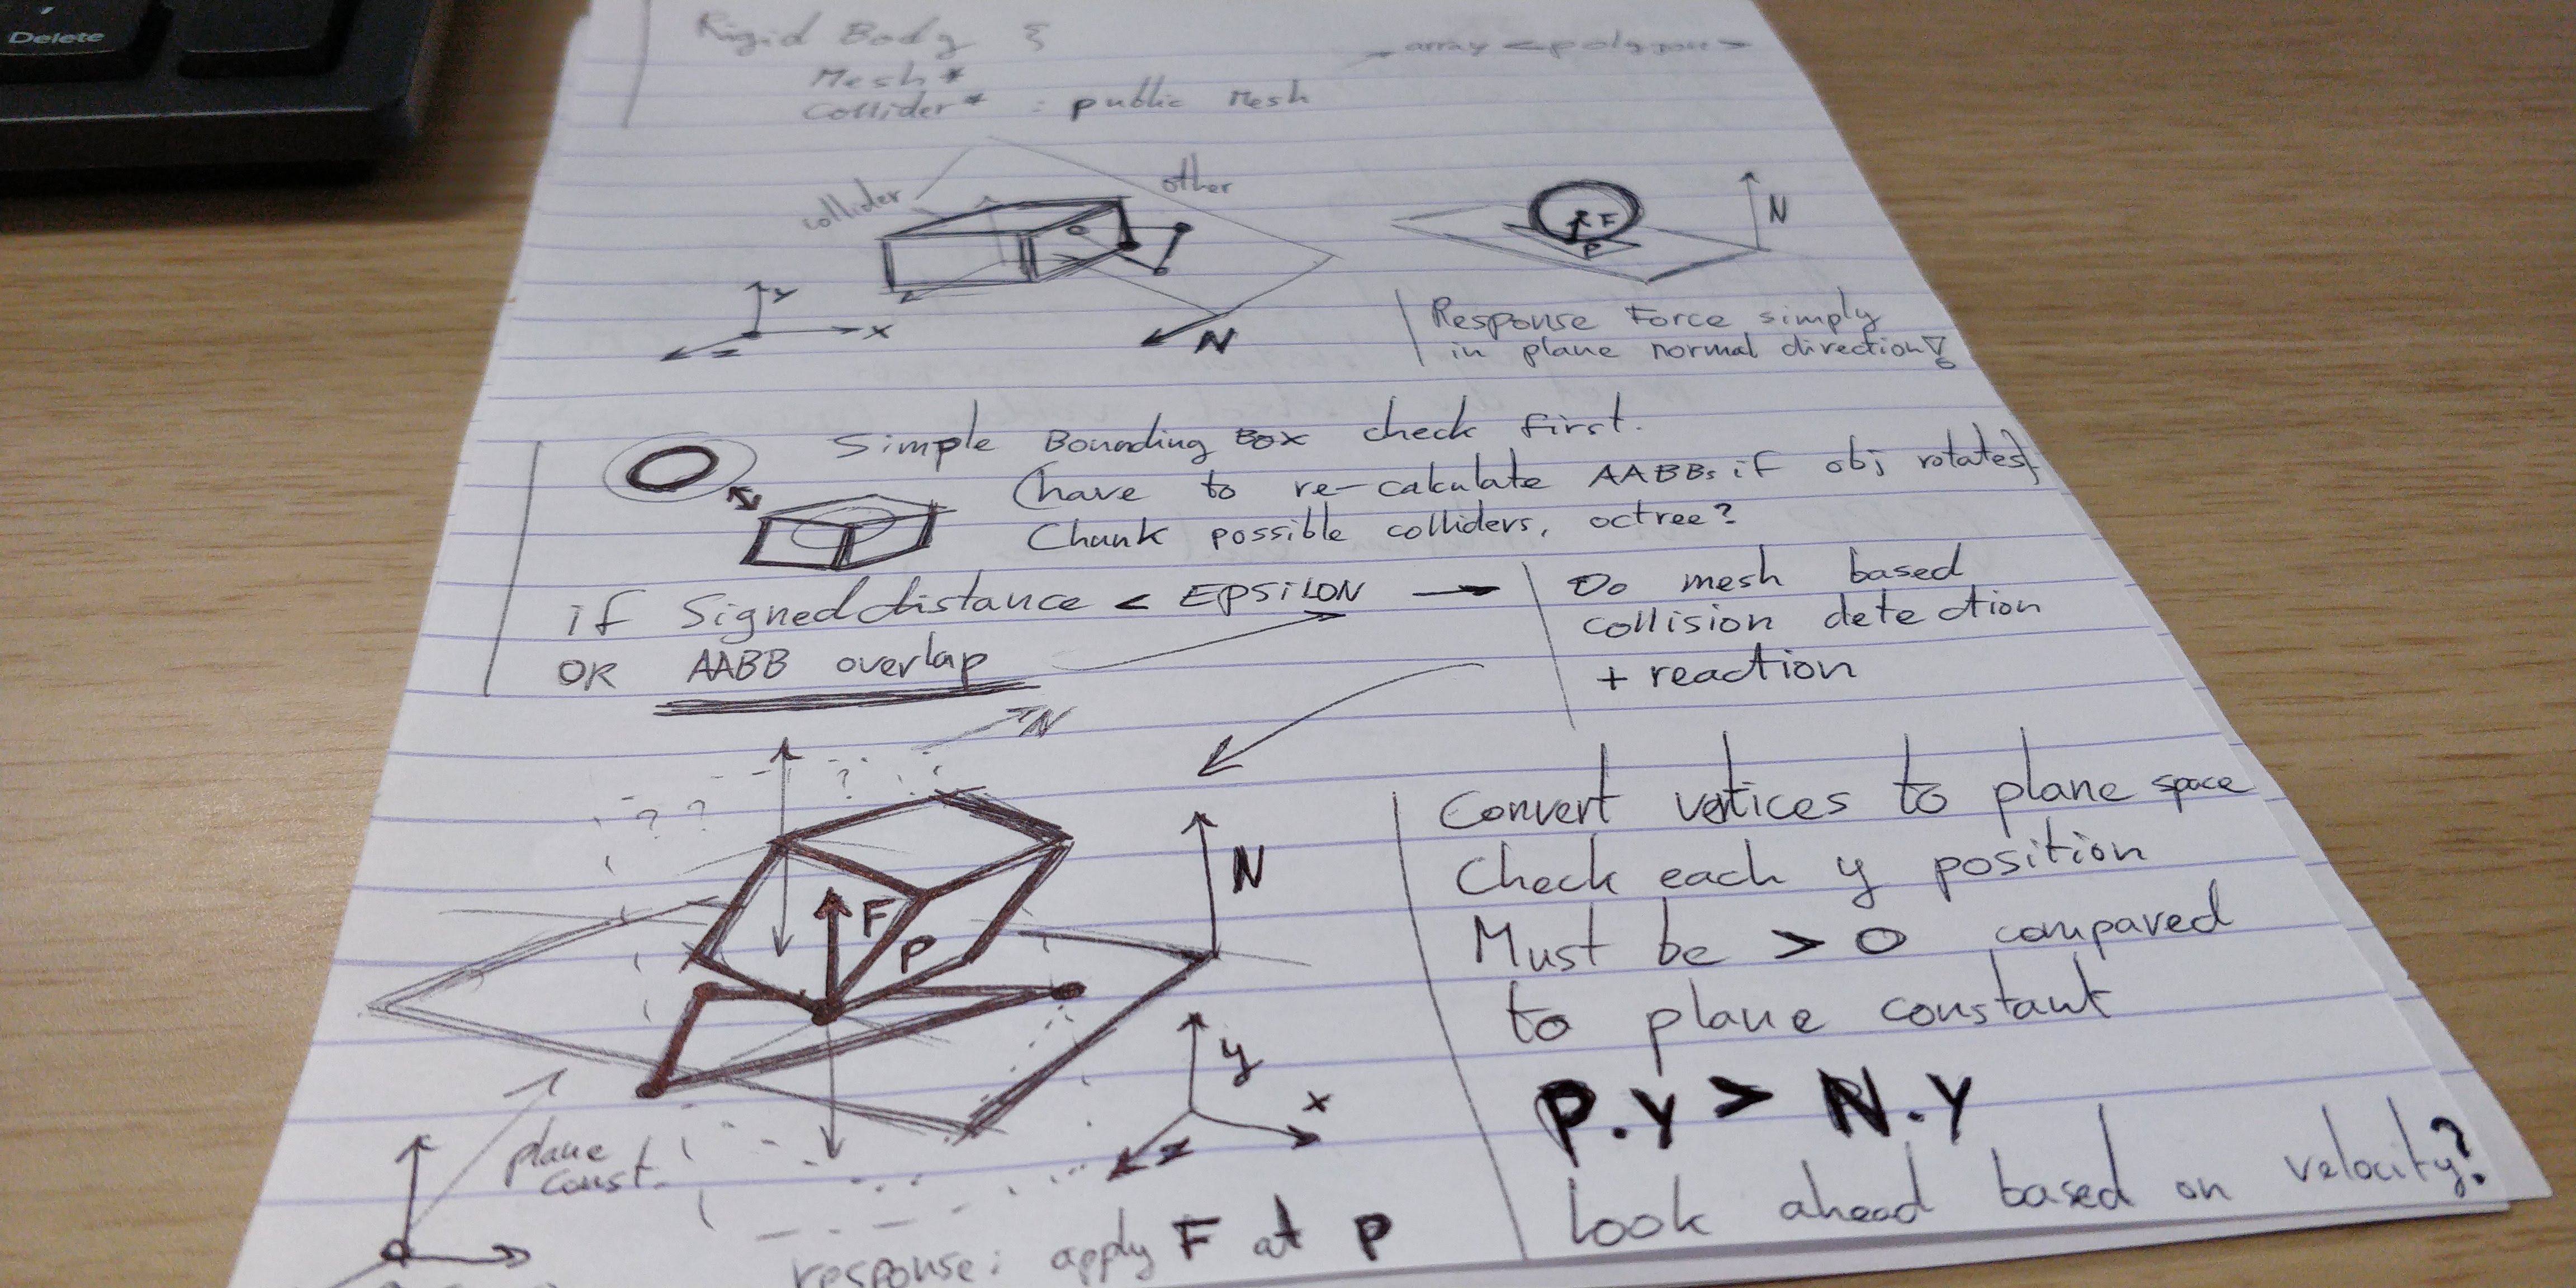 Delete
Rigid Body {
Mesh*
array <polygon>
Collider* : public Mesh
collider
other
N
F
P
y
x
z
N
Response Force simply
in plane normal direction!
Simple Bounding Box check first.
(have to re-calculate AABBs if obj rotates)
Chunk possible colliders, octree?
if Signed distance < EPSILON →
OR AABB overlap
Do mesh based
collision detection
+ reaction
N
? ?
?
N
F
P
y
x
z
plane
const.
response: apply F at P
Convert vertices to plane space
Check each y position
Must be > 0 compared
to plane constant
P.y > N.y
look ahead based on velocity?